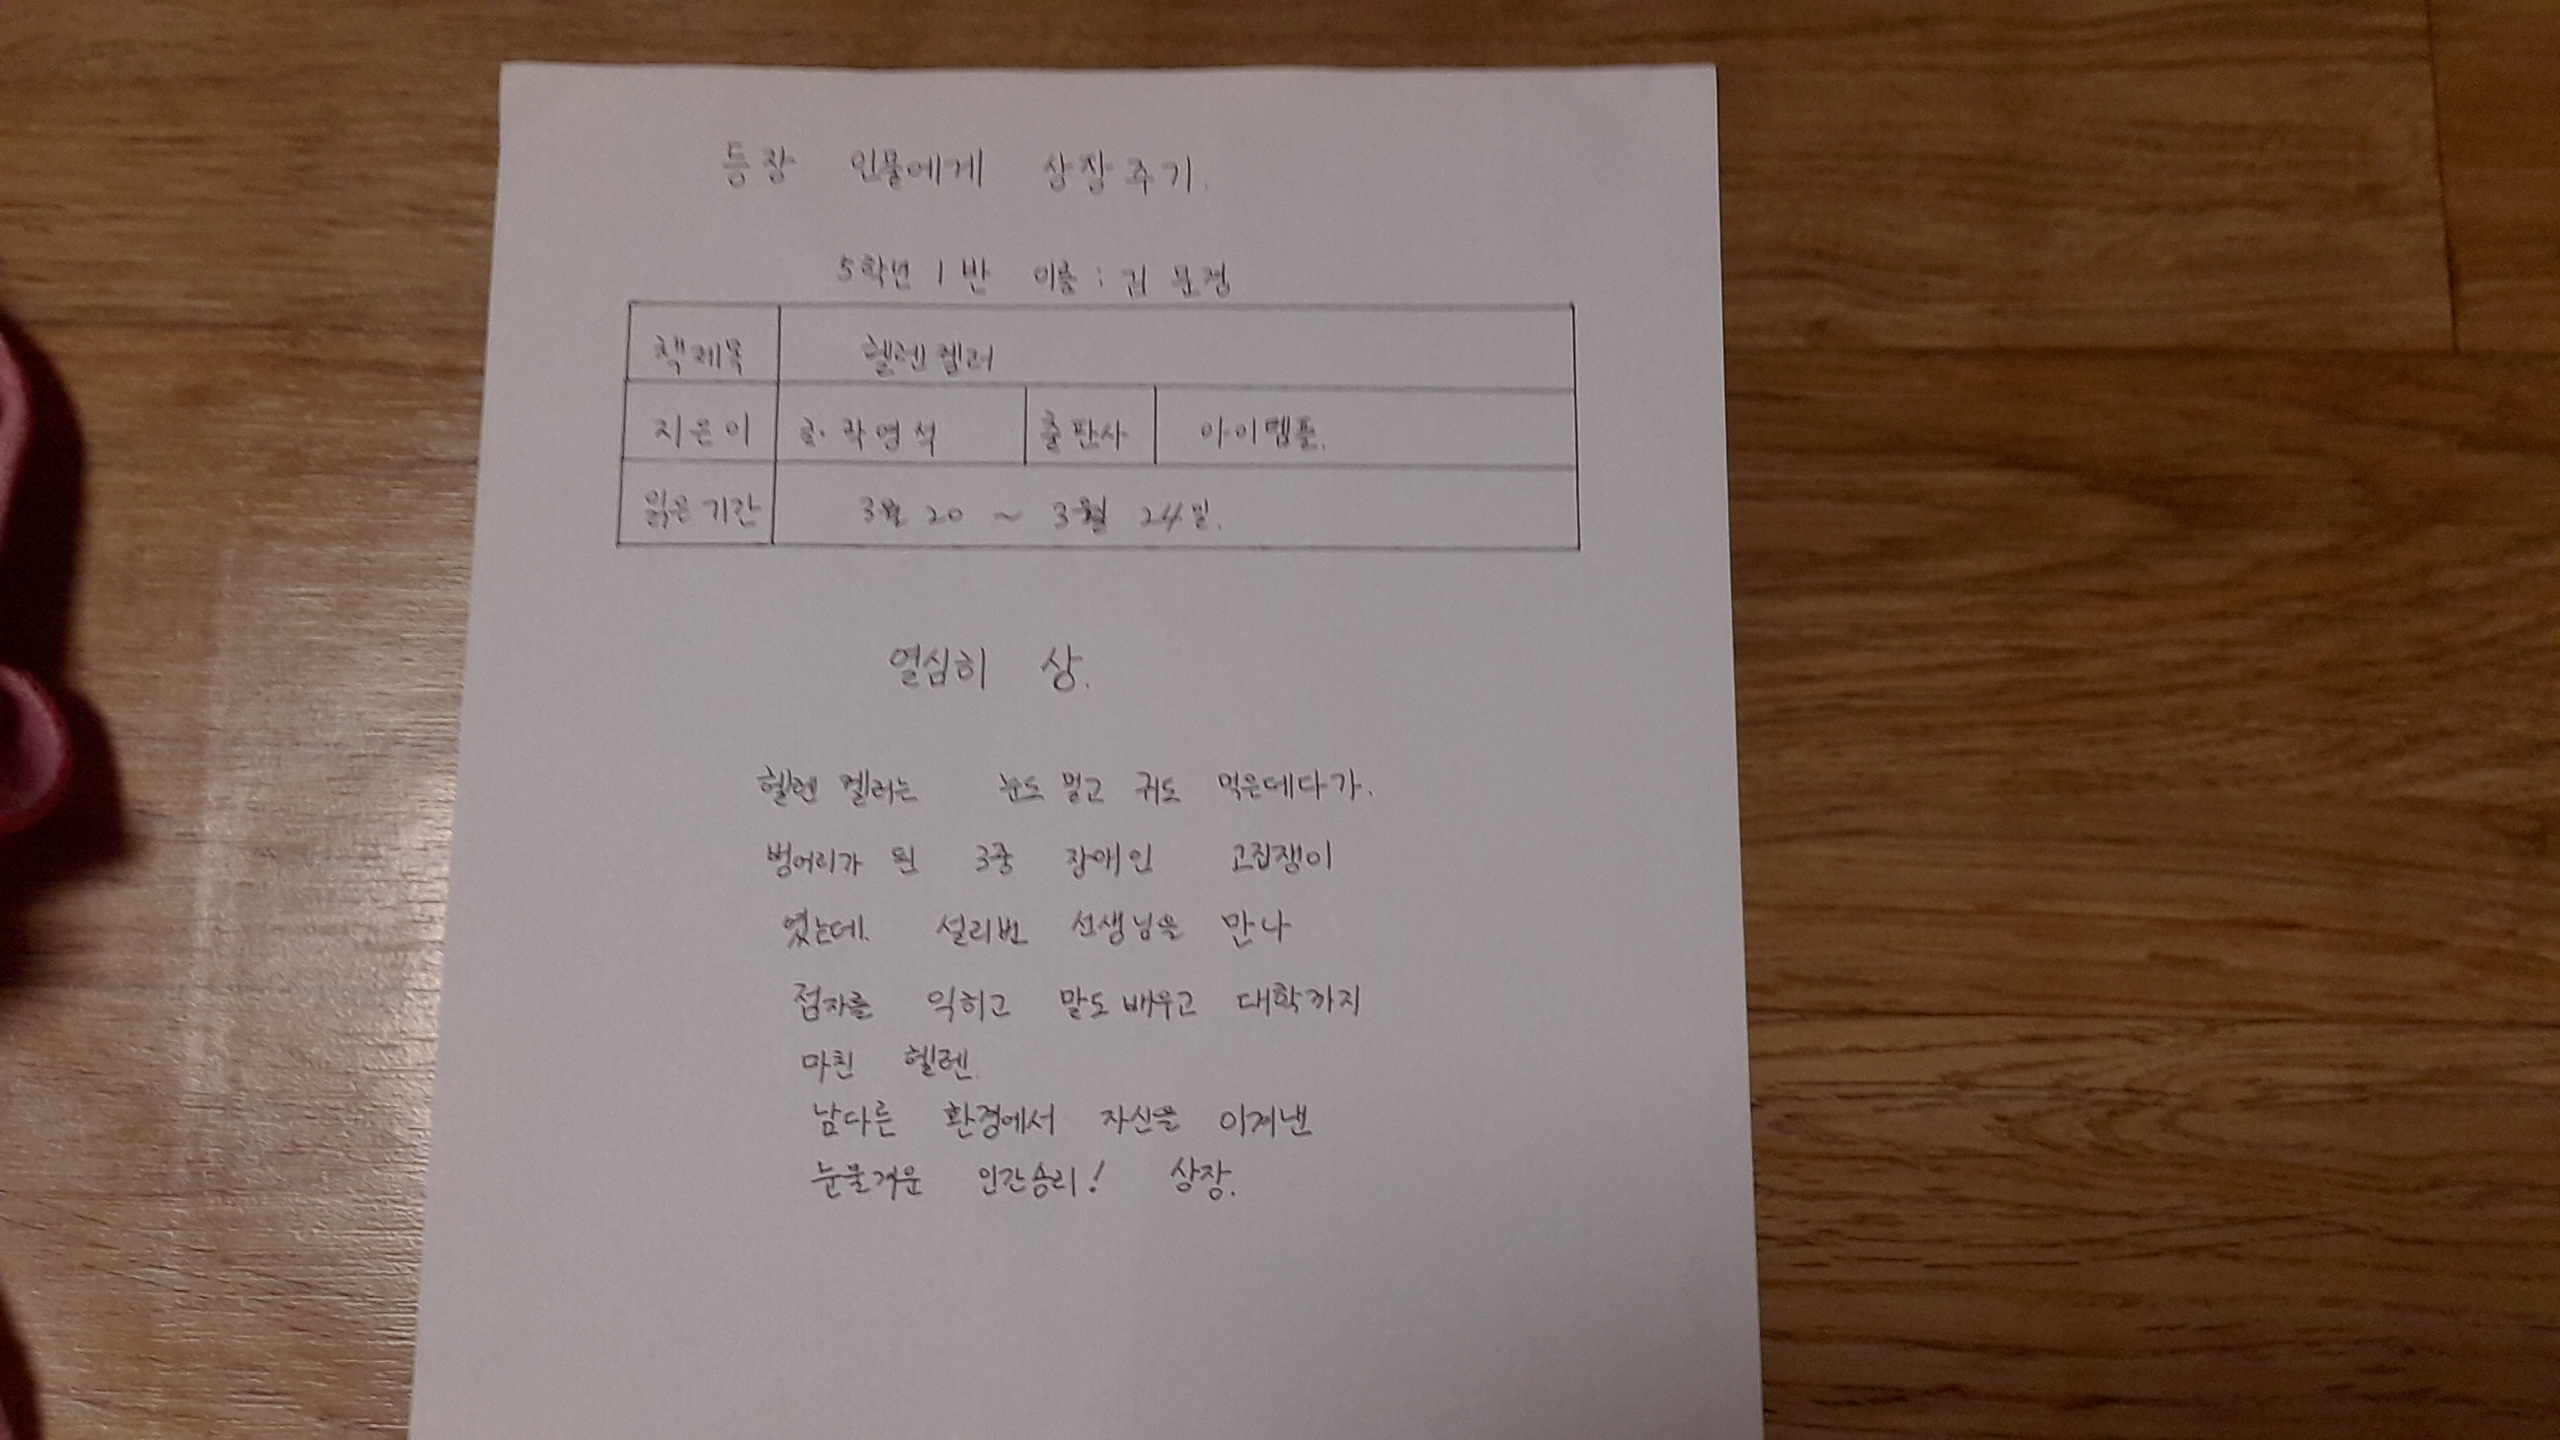 등장 인물에게 상장주기.
5학년 1반 이름 :
책제목 헬렌켈러
지은이 곽영석 출판사 아이템플.
읽은기간 3월 20 ~ 3월 24일.
열심히 상.
헬렌 켈러는 눈도 멀고 귀도 먹은데다가.
벙어리가 된 3중 장애인 고집쟁이
였는데. 설리번 선생님을 만나
점자를 익히고 말도 배우고 대학까지
마친 헬렌
남다른 환경에서 자신을 이겨낸
눈물겨운 인간승리! 상장.